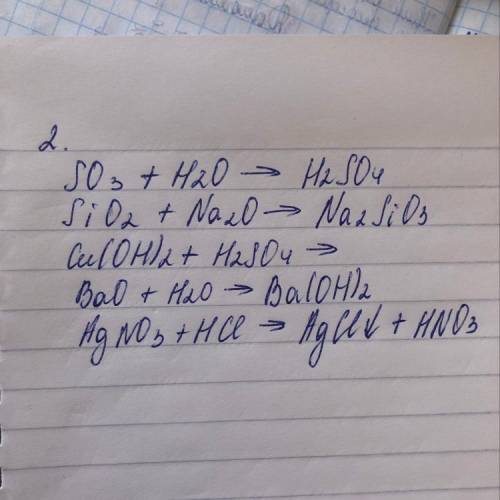 2.
SO3 + H2O → H2SO4
SiO2 + Na2O → Na2SiO3
Cu(OH)2 + H2SO4 →
BaO + H2O → Ba(OH)2
AgNO3 + HCl → AgCl↓ + HNO3